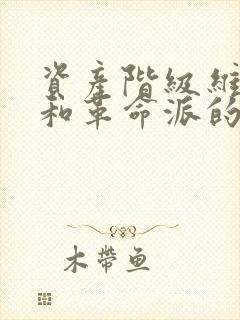 資產階級維
和革命派的
木帶魚